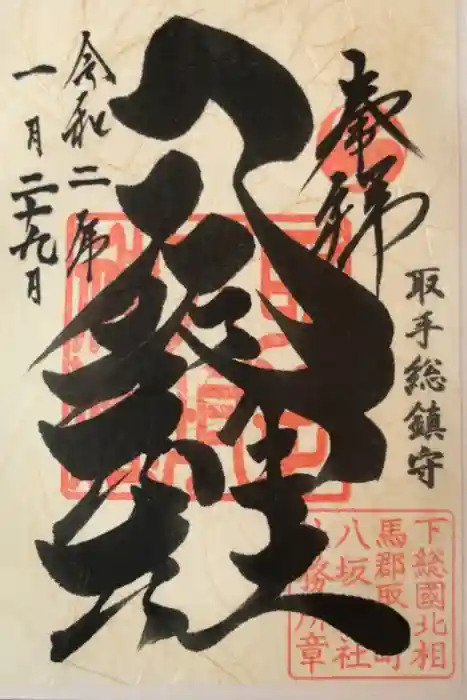 奉拝
取手総鎮守
八坂神社
令和二年
一月二十九日
下総國北相
馬郡取手町
八坂神社
社務所章